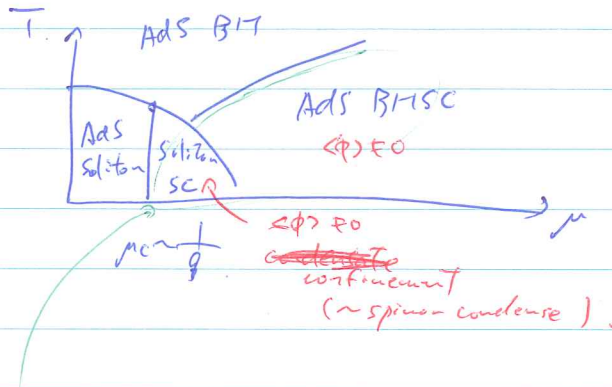 T
AdS BH
AdS BHSC
<φ> ≠ 0
AdS
Soliton
Soliton
SC
μ
μc ~ 1/g
<φ> ≠ 0
condensate
confinement
(~ spinon condense).